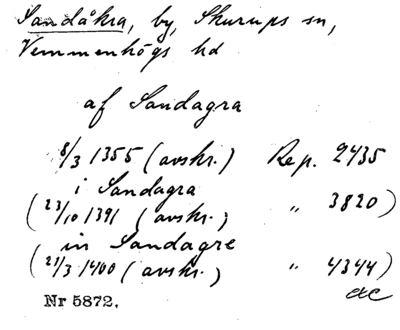 Sandåkra, by, Skurups sn,
Vemmenhögs hd
af Sandagra
8/3 1355 (avskr.) Rep. 2435
i Sandagra
(23/10 1391 (avskr.) " 3820)
in Sandagre
(21/3 1400 (avskr.) " 4344)
etc
Nr 5872.